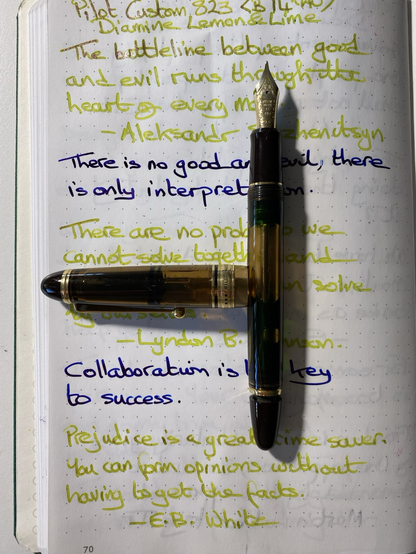 Pilot Custom 823 <B/14
Diamine Lemon & Lime
The battleline between good
and evil runs through the
heart of every
- Aleksandr
There is no good evil, there
is only
There are no we
cannot solve together and
solve
- Lyndon B.
Collaboration is key
to success.
Prejudice is a great time saver.
You can form opinions without
having to get the facts.
- E.B. White
70